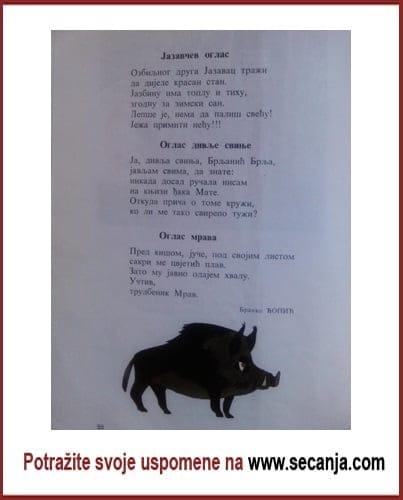 Јазавчев оглас
Озбиљног друга Јазавац тражи
да дијеле красан стан.
Јазбину има топлу и тиху,
згодну за зимски сан.
Љепше је, нема да палиш свећу!
Јежа примити нећу!!!
Оглас дивље свиње
Ја, дивља свиња, Брљанић Брља,
јављам свима, да знате:
никада досад ручала нисам
на књизи ђака Мате.
Откуда прича о томе кружи,
ко ли ме тако свирепо тужи?
Оглас мрава
Пред кишом, јуче, под својим листом
сакри ме цвјетић плав.
Зато му јавно одајем хвалу.
Учтив,
трудбеник Мрав.
Бранко ЋОПИЋ
Potražite svoje uspomene na www.secanja.com